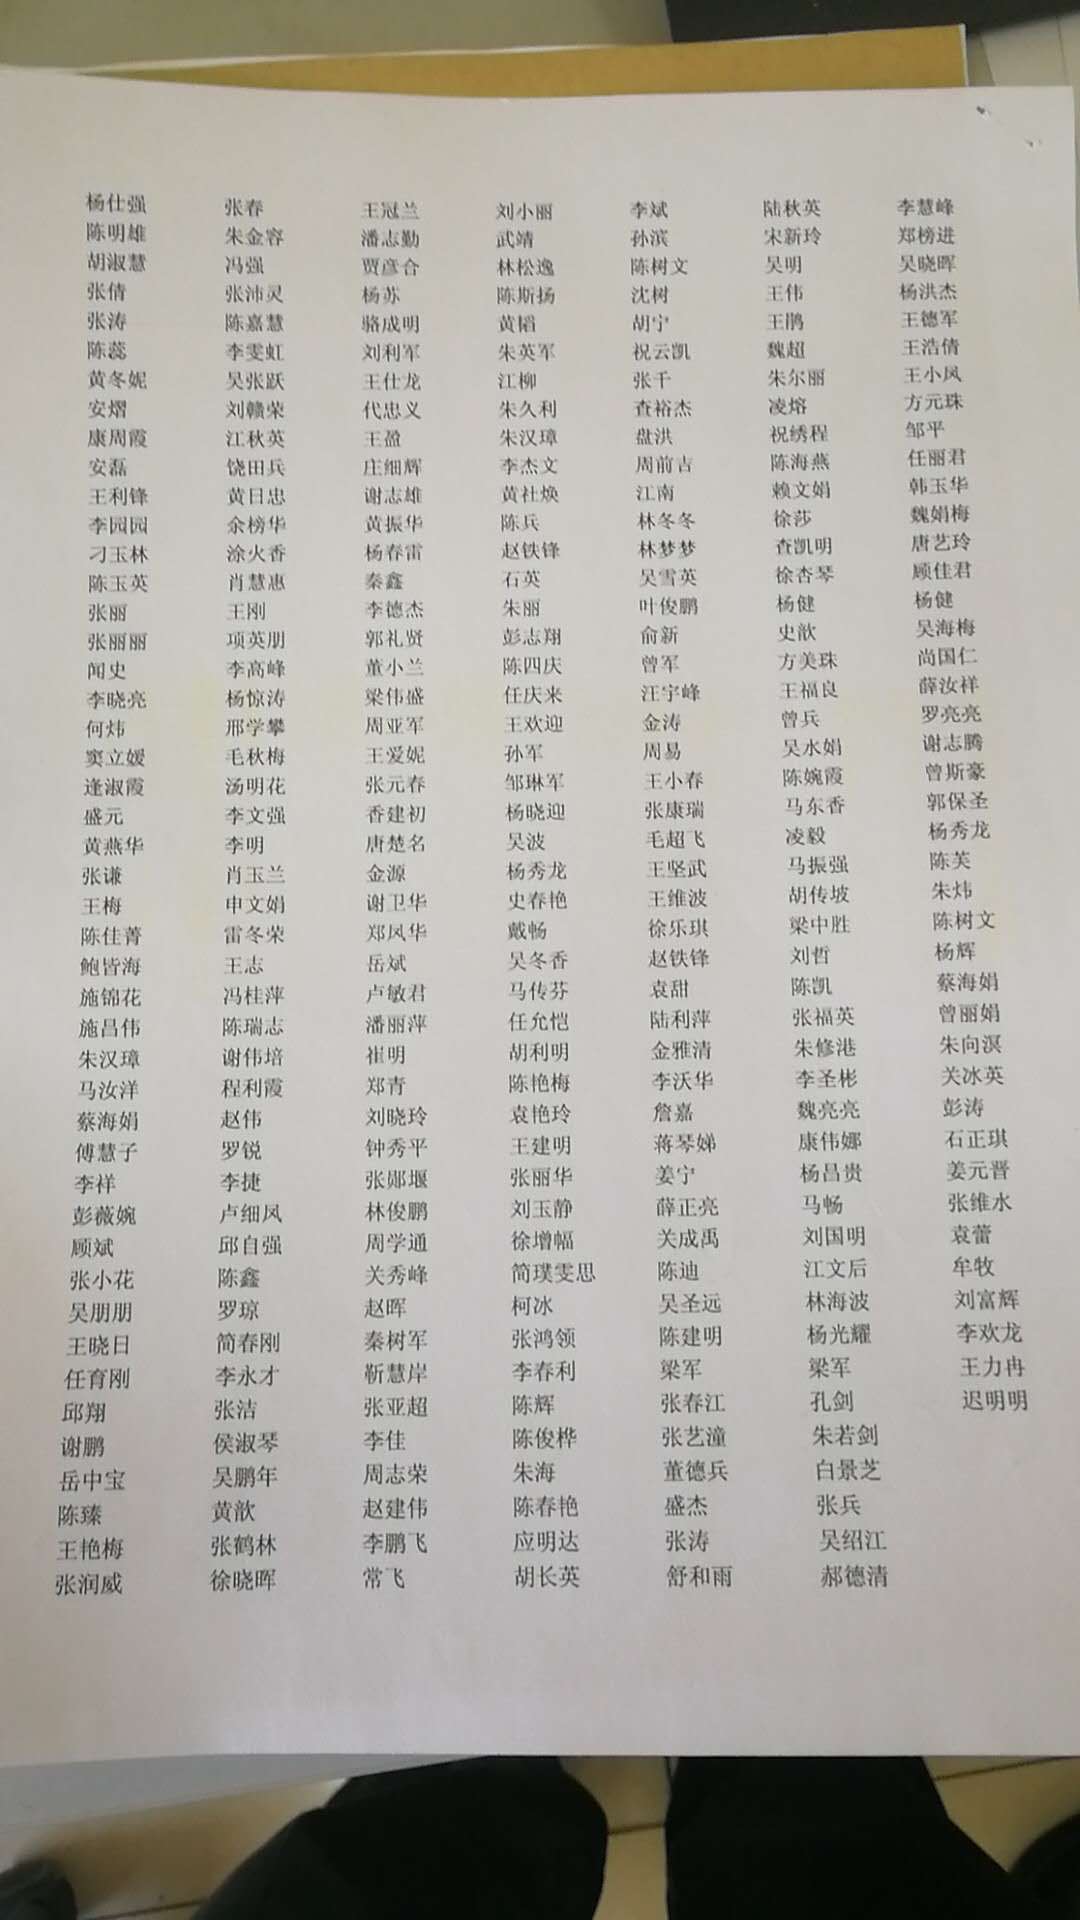 杨仕强 张春 王冠兰 刘小丽 李斌 陆秋英 李慧峰
陈明雄 朱金容 潘志勤 武靖 孙滨 宋新玲 郑榜进
胡淑慧 冯强 贾彦合 林松逸 陈树文 吴明 吴晓晖
张倩 张沛灵 杨苏 陈斯扬 沈树 王伟 杨洪杰
张涛 陈嘉慧 骆成明 黄韬 胡宁 王鹃 王德军
陈蕊 李雯虹 刘利军 朱英军 祝云凯 魏超 王浩倩
黄冬妮 吴张跃 王仕龙 江柳 张千 朱尔丽 王小凤
安熠 刘赣荣 代忠义 朱久利 查裕杰 凌熔 方元珠
康周霞 江秋英 王盈 朱汉璋 盘洪 祝绣程 邹平
安磊 饶田兵 庄细辉 李杰文 周前吉 陈海燕 任丽君
王利锋 黄日忠 谢志雄 黄社焕 江南 赖文娟 韩玉华
李园园 余榜华 黄振华 陈兵 林冬冬 徐莎 魏娟梅
刁玉林 涂火香 杨春雷 赵铁锋 林梦梦 查凯明 唐艺玲
陈玉英 肖慧惠 秦鑫 石英 吴雪英 徐杏琴 顾佳君
张丽 王刚 李德杰 朱丽 叶俊鹏 杨健 杨健
张丽丽 项英朋 郭礼贤 彭志翔 俞新 史歆 吴海梅
闻史 李高峰 董小兰 陈四庆 曾军 方美珠 尚国仁
李晓亮 杨惊涛 梁伟盛 任庆来 汪宇峰 王福良 薛汝祥
何炜 邢学攀 周亚军 王欢迎 金涛 曾兵 罗亮亮
窦立媛 毛秋梅 王爱妮 孙军 周易 吴水娟 谢志腾
逄淑霞 汤明花 张元春 邹琳军 王小春 陈婉霞 曾斯豪
盛元 李文强 香建初 杨晓迎 张康瑞 马东香 郭保圣
黄燕华 李明 唐楚名 吴波 毛超飞 凌毅 杨秀龙
张谦 肖玉兰 金源 杨秀龙 王坚武 马振强 陈芙
王梅 申文娟 谢卫华 史春艳 王维波 胡传坡 朱炜
陈佳菁 雷冬荣 郑凤华 戴畅 徐乐琪 梁中胜 陈树文
鲍皆海 王志 岳斌 吴冬香 赵铁锋 刘哲 杨辉
施锦花 冯桂萍 卢敏君 马传芬 袁甜 陈凯 蔡海娟
施昌伟 陈瑞志 潘丽萍 任允恺 陆利萍 张福英 曾丽娟
朱汉璋 谢伟培 崔明 胡利明 金雅清 朱修港 朱向溟
马汝洋 程利霞 郑青 陈艳梅 李沃华 李圣彬 关冰英
蔡海娟 赵伟 刘晓玲 袁艳玲 詹嘉 魏亮亮 彭涛
傅慧子 罗锐 钟秀平 王建明 蒋琴娣 康伟娜 石正琪
李祥 李捷 张郧堰 张丽华 姜宁 杨昌贵 姜元晋
彭薇婉 卢细凤 林俊鹏 刘玉静 薛正亮 马畅 张维水
顾斌 邱自强 周学通 徐增幅 关成禹 刘国明 袁蕾
张小花 陈鑫 关秀峰 简璞雯思 陈迪 江文后 牟牧
吴朋朋 罗琼 赵晖 柯冰 吴圣远 林海波 刘富辉
王晓日 简春刚 秦树军 张鸿领 陈建明 杨光耀 李欢龙
任育刚 李永才 靳慧岸 李春利 梁军 梁军 王力冉
邱翔 张洁 张亚超 陈辉 张春江 孔剑 迟明明
谢鹏 侯淑琴 李佳 陈俊桦 张艺潼 朱若剑
岳中宝 吴鹏年 周志荣 朱海 董德兵 白景芝
陈臻 黄歆 赵建伟 陈春艳 盛杰 张兵
王艳梅 张鹤林 李鹏飞 应明达 张涛 吴绍江
张润威 徐晓晖 常飞 胡长英 舒和雨 郝德清